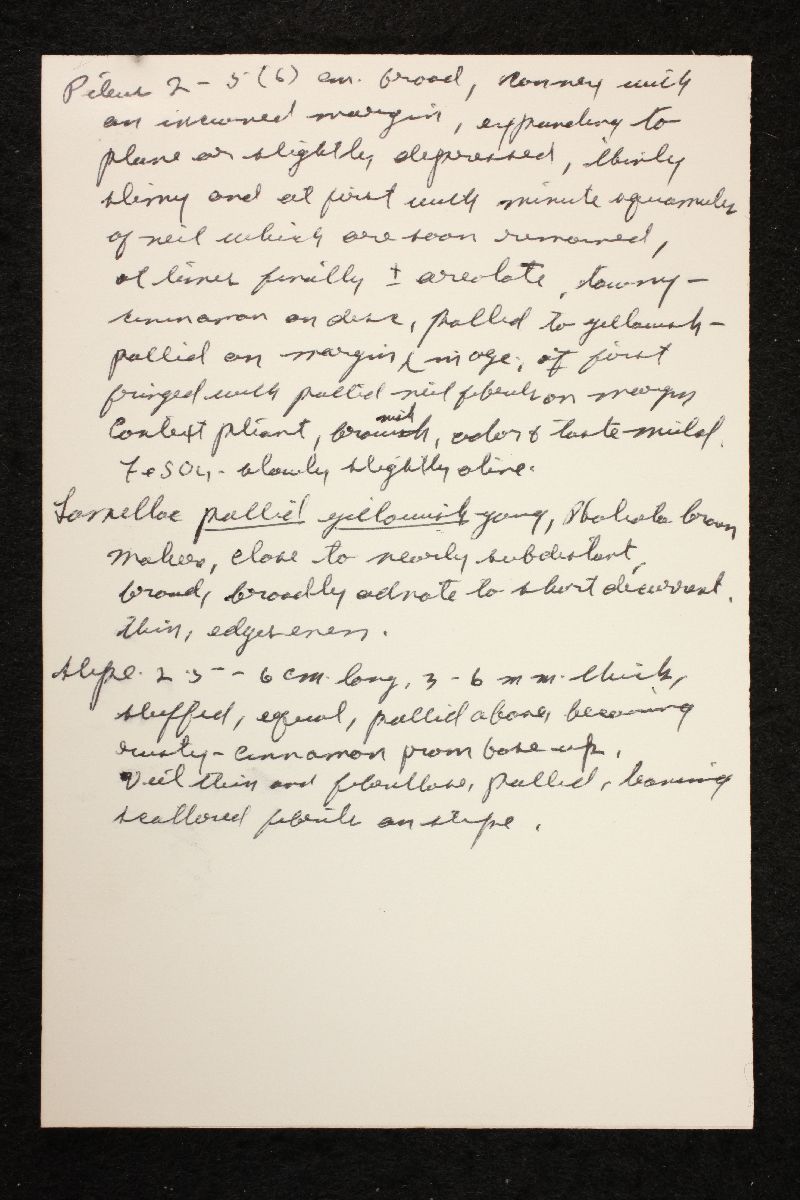 Pileus 2 - 5 (6) cm. broad, convex with
an incurved margin, expanding to
plane or slightly depressed, thinly
slimy and at first with minute squamules
of veil which are soon removed,
at times finally ± areolate, tawny-
cinnamon on disc, pallid to yellowish-
pallid on margin in age, at first
fringed with pallid veil fibrils on margin
Context pliant, brownish, odor & taste mild.
FeSO4 - slowly slightly olive.
Lamellae pallid yellowish young, brown
mature, close to nearly subdistant,
broad, broadly adnate to short decurrent.
thin, edges even.
Stipe 2.5 - 6 cm. long, 3 - 6 mm. thick,
stuffed, equal, pallid above, becoming
rusty-cinnamon from base up.
Veil thin and fibrillose, pallid, leaving
scattered fibrils on stipe.